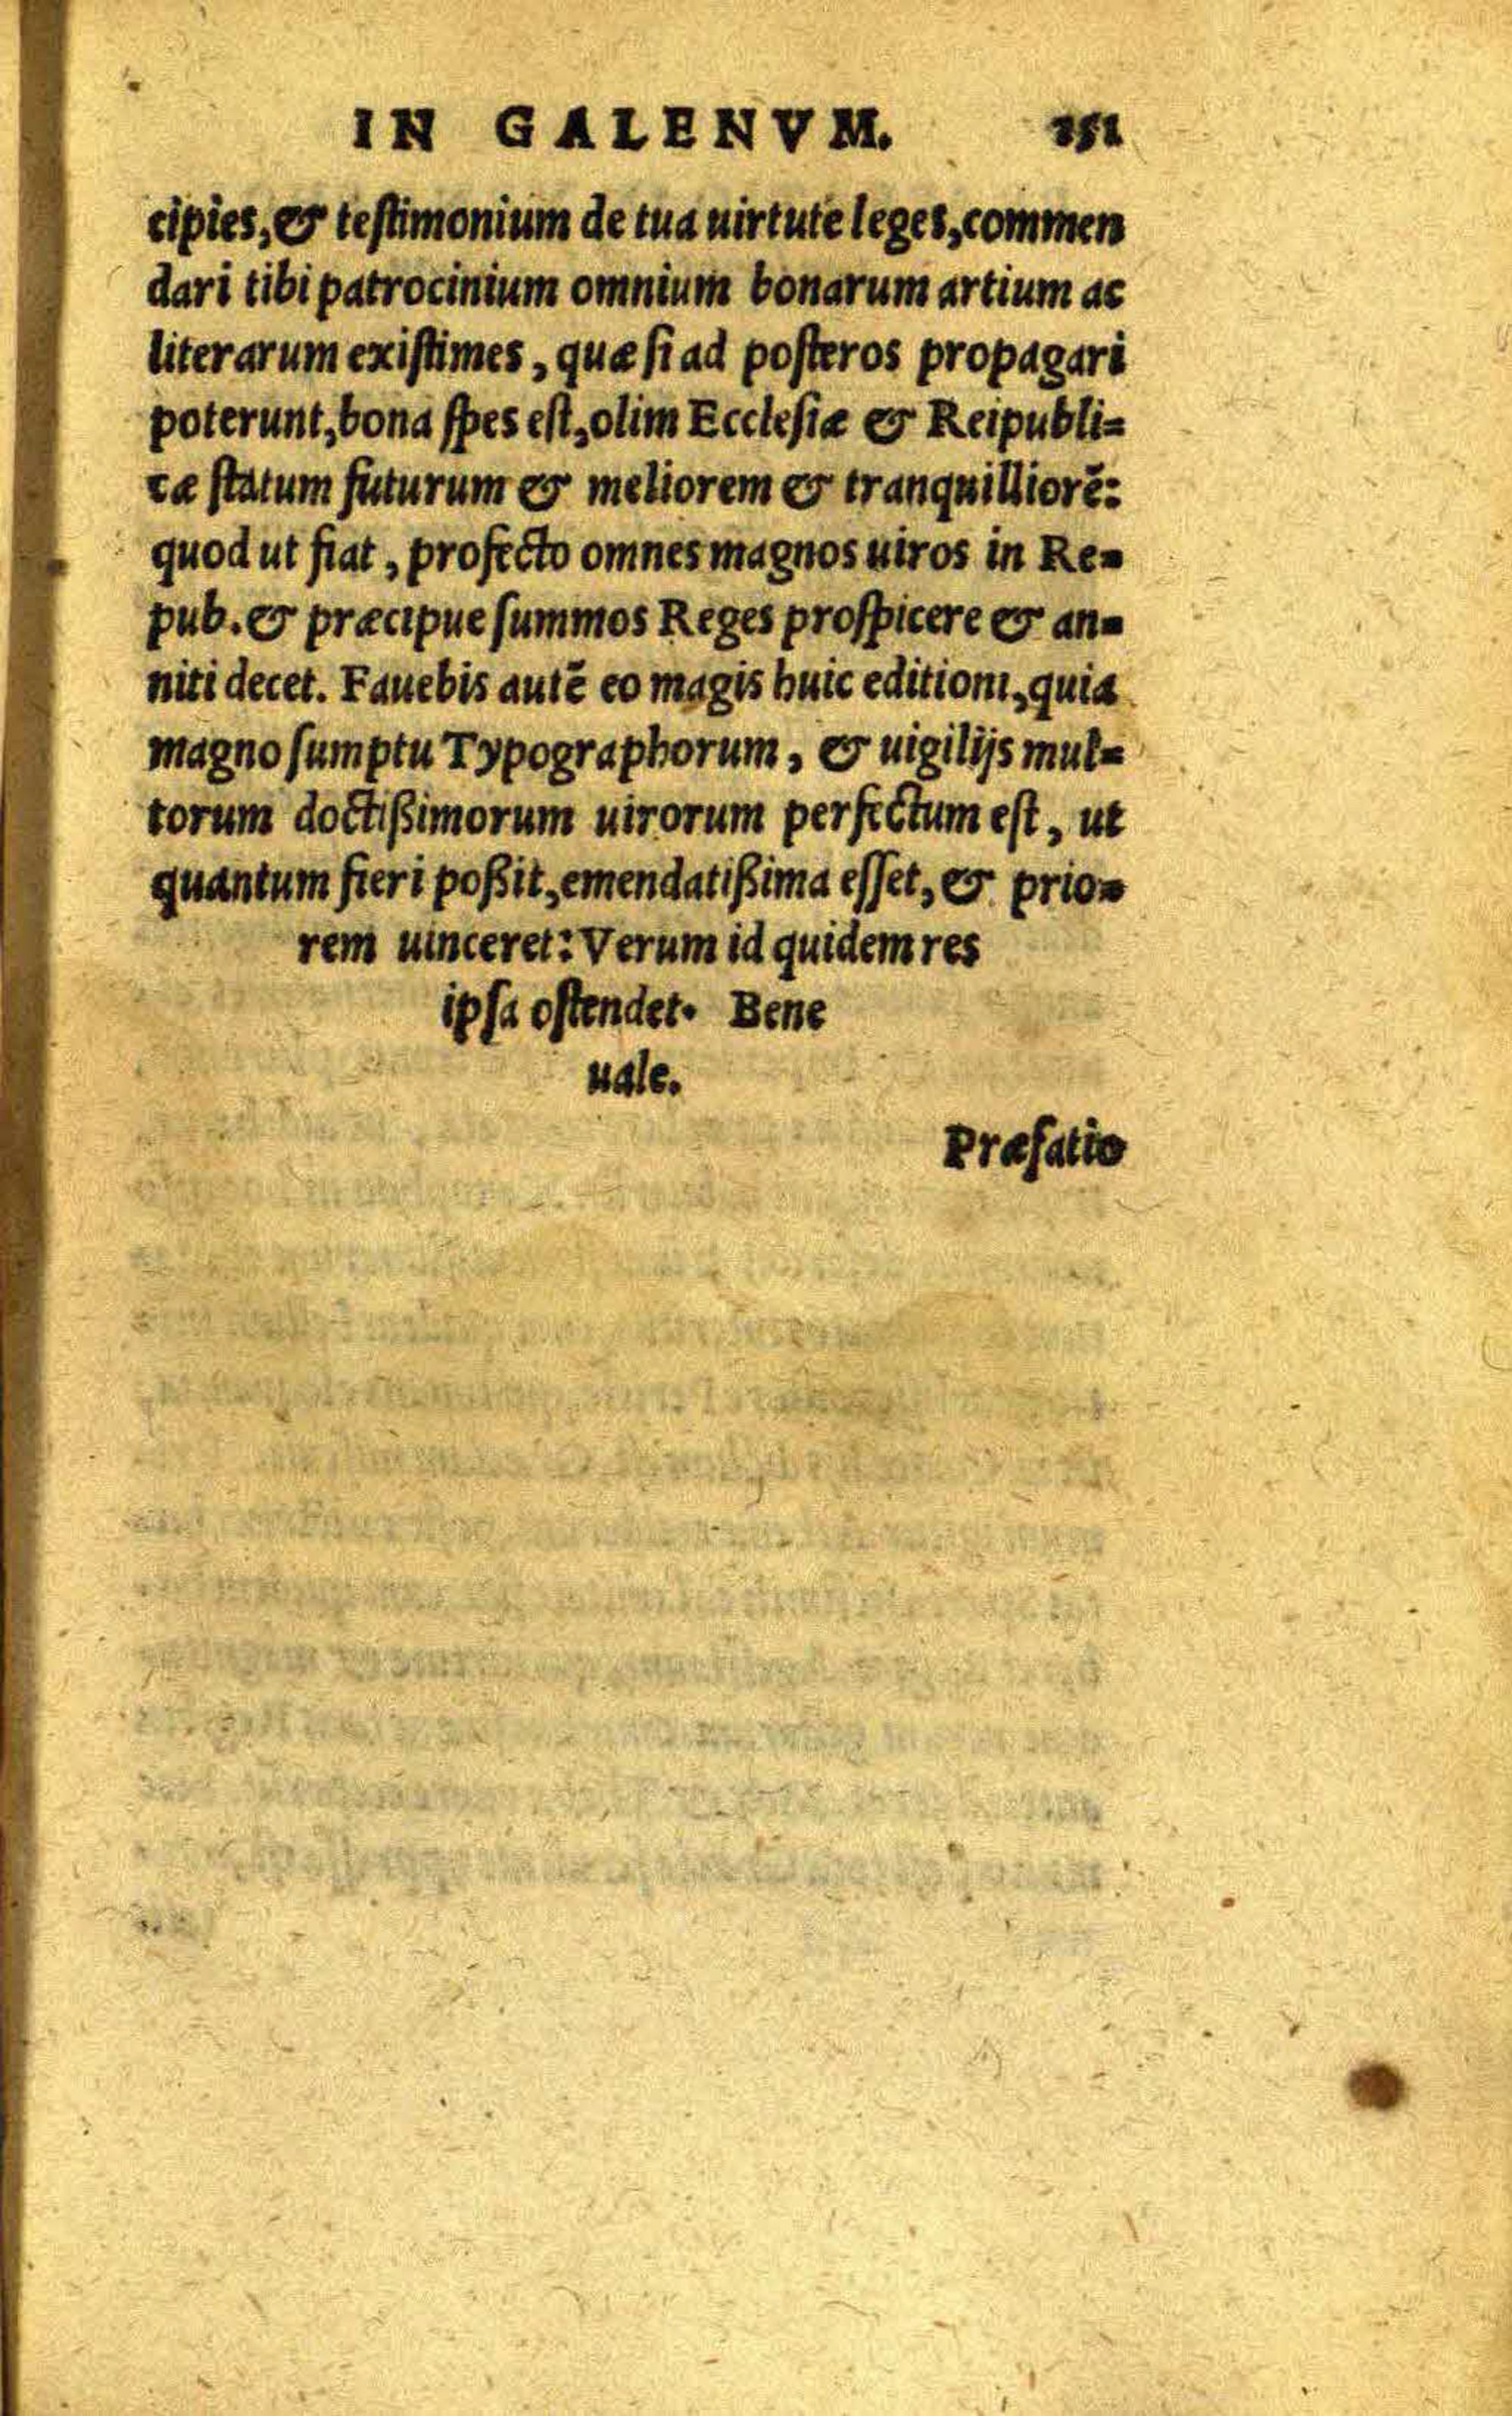 IN GALENVM. 251
cipies, & testimonium de tua uirtute leges, commen
dari tibi patrocinium omnium bonarum artium ac
literarum existimes, quæ si ad posteros propagari
poterunt, bona spes est, olim Ecclesiæ & Reipubli=
cæ statum futurum & meliorem & tranquilliorẽ:
quod ut fiat, profecto omnes magnos uiros in Re=
pub. & præcipue summos Reges prospicere & an=
niti decet. Fauebis autẽ eo magis huic editioni, quia
magno sumptu Typographorum, & uigilijs mul=
torum doctißimorum uirorum perfectum est, ut
quantum fieri poßit, emendatißima esset, & prio=
rem uinceret: Verum id quidem res
ipsa ostendet. Bene
uale.
Præfatio